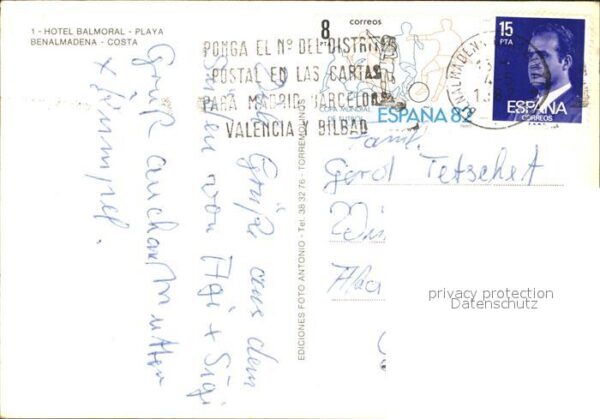 1 - HOTEL BALMORAL - PLAYA
BENALMADENA - COSTA
8
correos
COPA MUNDIAL
DE FUTBOL
ESPAÑA 82
PONGA EL Nº DEL DISTRITO
POSTAL EN LAS CARTAS
PARA MADRID BARCELONA
VALENCIA Y BILBAO
BENALMADENA
15
PTA
ESPAÑA
CORREOS
EDICIONES FOTO ANTONIO - Tel. 38 32 76 - TORREMOLINOS
Grüße aus dem
Süden von Agi + Sigi
Gruß auch an Mutter
+
Famil.
Gerd Tetschet
privacy protection
Datenschutz